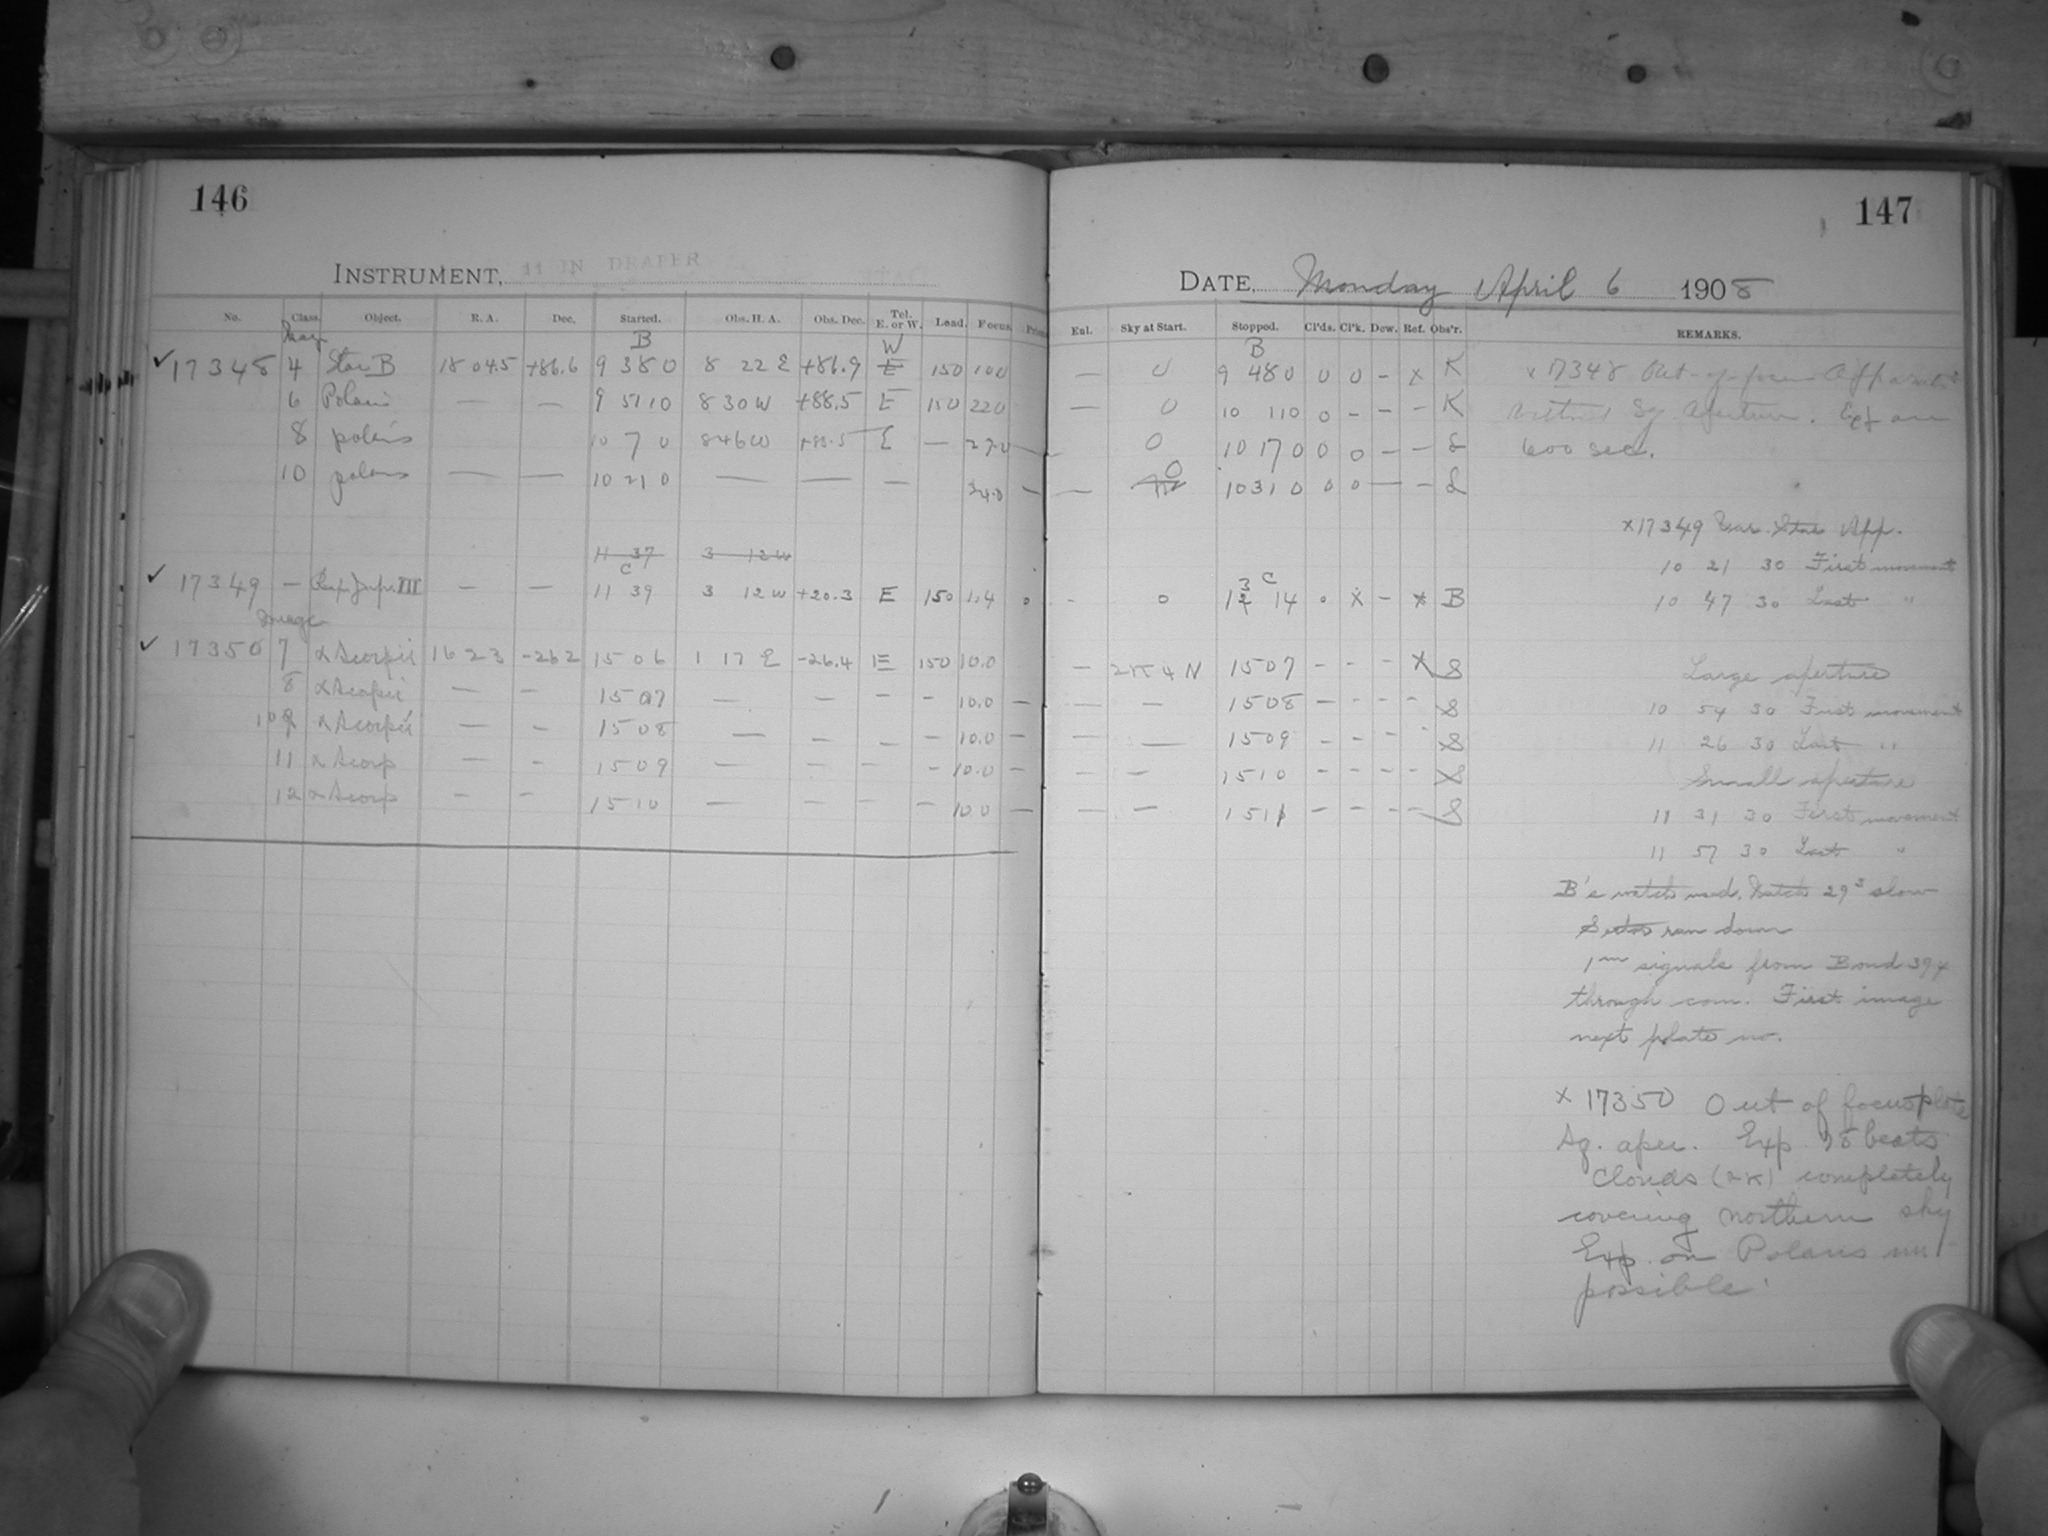 146
INSTRUMENT, 11 IN DRAPER
No. Class. Object. R. A. Dec. Started. Obs. H. A. Obs. Dec. Tel. E. or W. Load. Focus.
B W
17348 4 Star B 18 04.5 +86.6 9 38 0 8 22 E +86.9 E 150 100
6 Polaris — — 9 51 0 8 30 W +88.5 E 150 220
8 polaris 10 7 0 8 46 W +88.5 E —
10 polaris — — 10 21 0 — — —
11 37 3 12 W
C
17349 — — — 11 39 3 12 W +20.3 E 150 1.4 0
Image
17350 7 α Scorpii 16 23 -26 2 15 06 1 17 E -26.4 E 150 10.0
8 α Scorpii — — 15 07 — — — — 10.0 —
10 9 α Scorpii — — 15 08 — — — — 10.0 —
11 α Scorp — — 15 09 — — — — 10.0 —
12 α Scorp — — 15 10 — — — — 10.0 —
147
DATE, Monday April 6 1908
Enl. Sky at Start. Stopped. Cl'ds. Cl'k. Dew. Ref. Obs'r. REMARKS.
B
— 0 9 48 0 0 0 - x K x 17348 Out-of-focus
— 0 10 11 0 0 - - - K Sq aperture.
0 10 17 0 0 0 - - 600 sec.
— 0 10 31 0 0 0 — -
x 17349 App.
10 21 30 First movement
3 C
- 0 12 14 0 x - x B 10 47 30 Last "
— 2K 4 N 15 07 - - - x S Large aperture
— — 15 08 - - - - S 10 54 30 First movement
— — 15 09 - - - - S 11 26 30 Last "
— — 15 10 - - - - S Small aperture
— — 15 11 - - - - S 11 31 30 First movement
11 57 30 Last "
B's watch used. Watch 29s slow
ran down
1m signals from Bond 394
through com. First image
next plate no.
x 17350 Out of focus plate
Sq. aper. Exp. beats
Clouds (2K) completely
covering northern sky
Exp. on Polaris im-
possible.